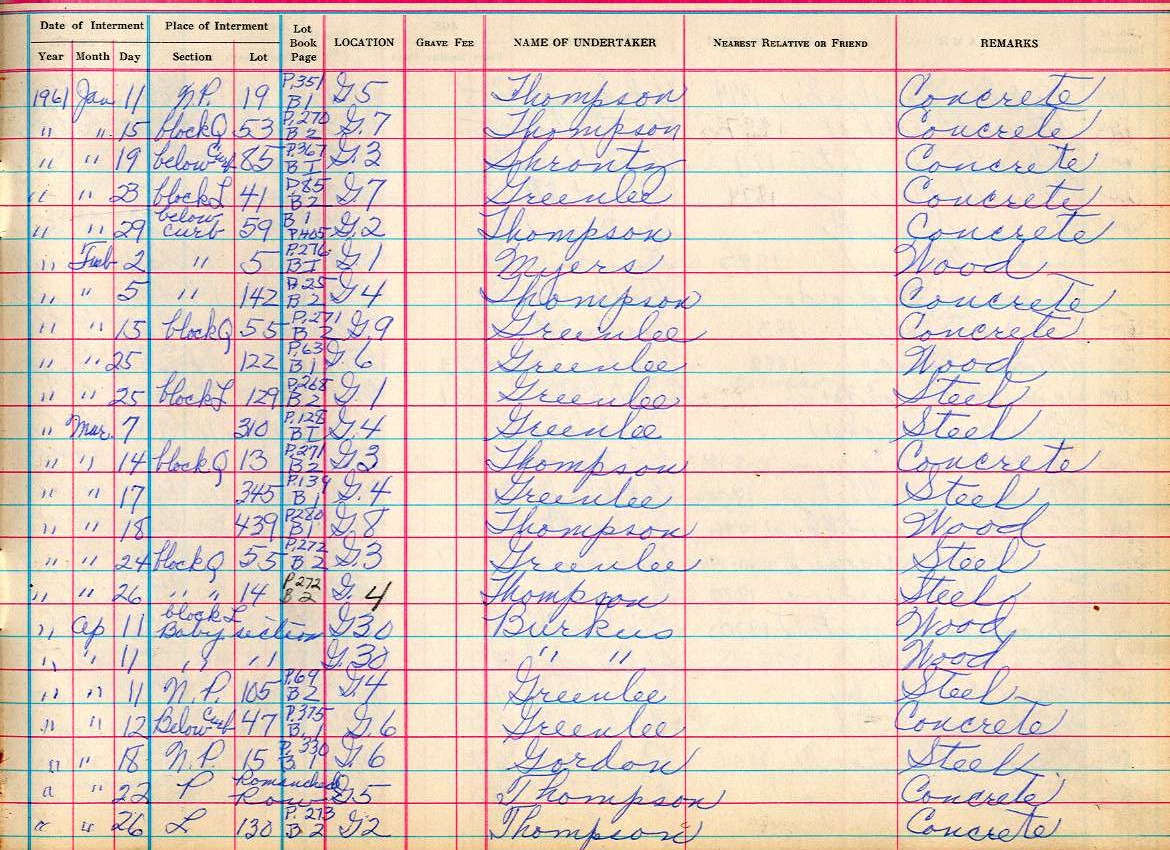 Date of Interment Place of Interment Lot Book Page LOCATION GRAVE FEE NAME OF UNDERTAKER NEAREST RELATIVE OR FRIEND REMARKS
Year Month Day Section Lot
1961 Jan 11 N.P. 19 P.351 B1 G.5 Thompson Concrete
" " 15 block Q 53 P.270 B2 G.7 Thompson Concrete
" " 19 below Curb 85 P.367 B I G.2 Shrontz Concrete
" " 23 block L 41 P.85 B2 G7 Greenlee Concrete
" " 29 below curb 59 B1 P405 G.2 Thompson Concrete
" Feb 2 " 5 P.276 B I G1 Myers Wood
" " 5 " 142 P.25 B2 G4 Thompson Concrete
" " 15 block Q 55 P.271 B2 G.9 Greenlee Concrete
" " 25 122 P.63 B1 G.6 Greenlee Wood
" " 25 block L 129 P.268 B2 G.1 Greenlee Steel
" Mar. 7 310 P.128 B I G.4 Greenlee Steel
" " 14 block Q 13 P.271 B2 G.3 Thompson Concrete
" " 17 345 P.139 B1 G.4 Greenlee Steel
" " 18 439 P.280 B1 G.8 Thompson Wood
" " 24 block Q 55 P.272 B2 G.3 Greenlee Steel
" " 26 " " 14 P.272 B2 G. 4 Thompson Steel
" Ap 11 block L Baby section G30 Burkus Wood
" " 11 " " G.30 " " Wood
" " 11 N.P. 105 P.69 B2 G.4 Greenlee Steel
" " 12 Below Curb 47 P.375 B.1 G.6 Greenlee Concrete
" " 18 N.P. 15 P.330 B1 G.6 Gordon Steel
" " 22 P Row G5 Thompson Concrete
" " 26 L 130 P.273 B2 G2 Thompson Concrete